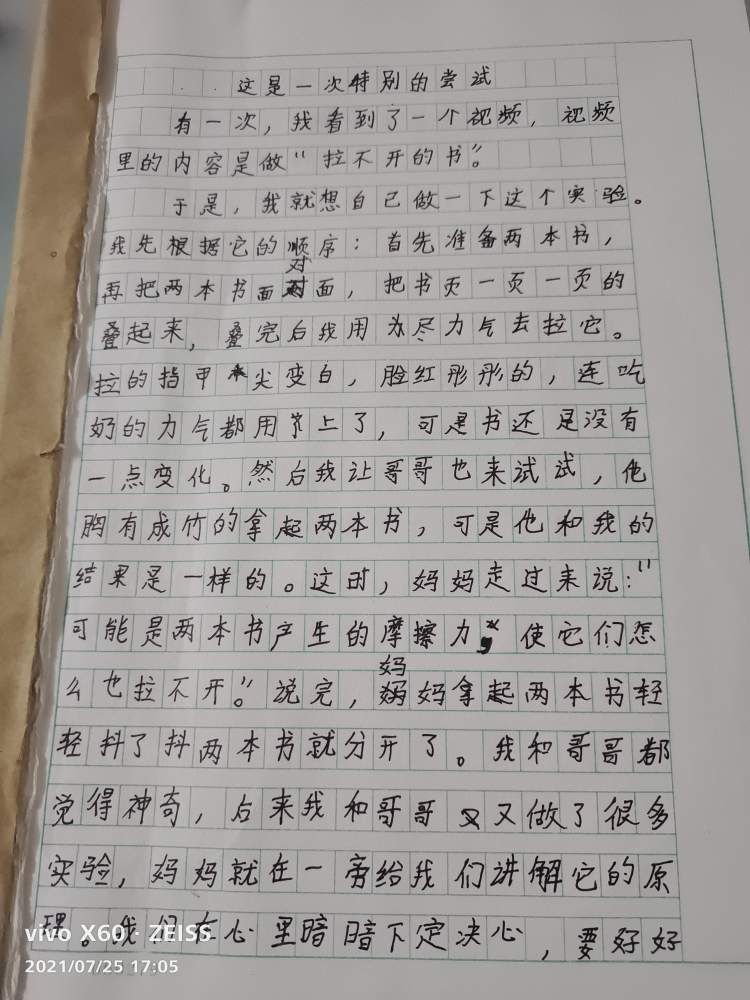 这是一次特别的尝试
有一次，我看到了一个视频，视频
里的内容是做“拉不开的书”。
于是，我就想自己做一下这个实验。
我先根据它的顺序：首先准备两本书，
再把两本书面对面，把书页一页一页的
叠起来，叠完后我用尽力气去拉它。
拉的指甲尖变白，脸红彤彤的，连吃
奶的力气都用上了，可是书还是没有
一点变化。然后我让哥哥也来试试，他
胸有成竹的拿起两本书，可是他和我的
结果是一样的。这时，妈妈走过来说：“
可能是两本书产生的摩擦力，使它们怎
么也拉不开”。说完，妈妈拿起两本书轻
轻抖了抖两本书就分开了。我和哥哥都
觉得神奇，后来我和哥哥又做了很多
实验，妈妈就在一旁给我们讲解它的原
理。我们在心里暗暗下定决心，要好好
vivo X60 | ZEISS
2021/07/25 17:05